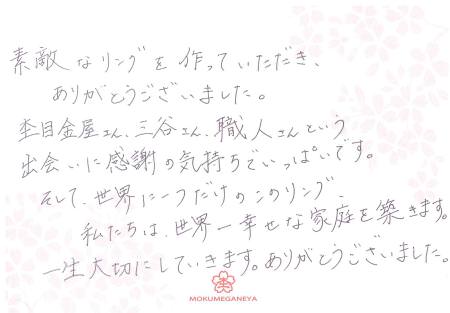 素敵なリングを作っていただき、
ありがとうございました。
杢目金屋さん、三谷さん、職人さんという
出会いに感謝の気持ちでいっぱいです。
そして、世界に一つだけのこのリング、
私たちは、世界一幸せな家庭を築きます。
一生大切にしていきます。ありがとうございました。
MOKUMEGANEYA